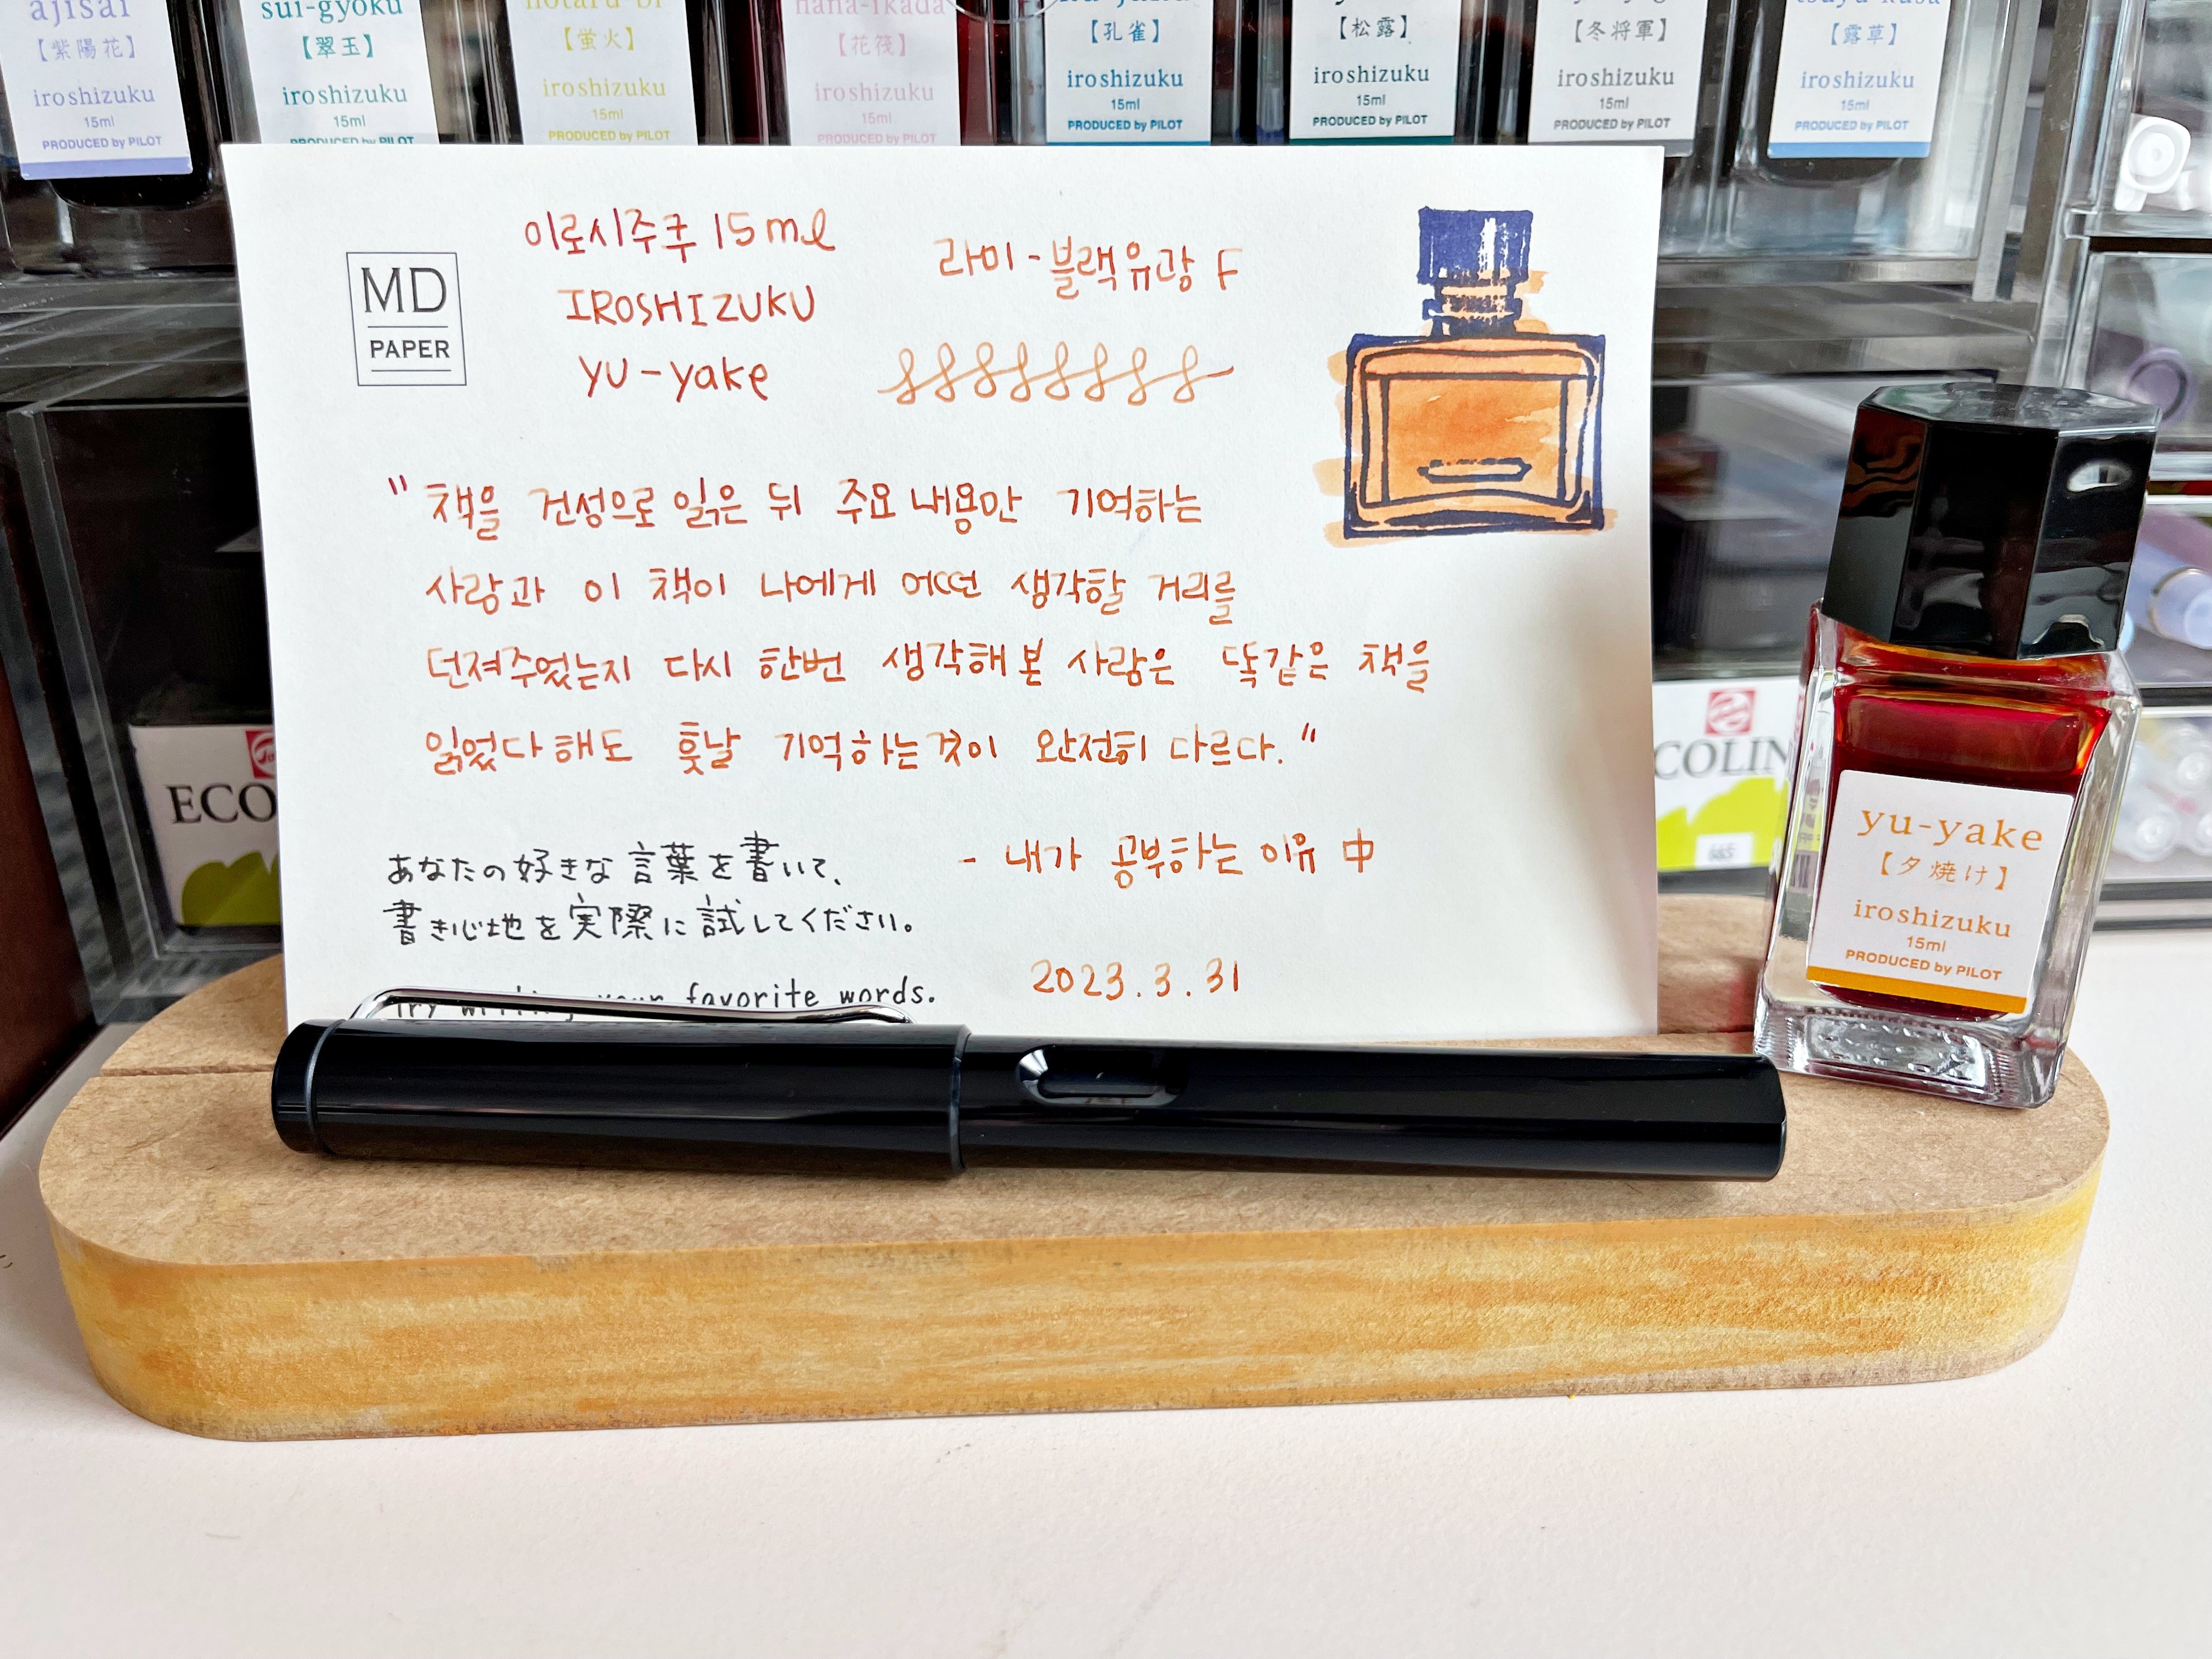 ajisai
【紫陽花】
iroshizuku
15ml
PRODUCED by PILOT
sui-gyoku
【翠玉】
iroshizuku
15ml
PRODUCED by PILOT
hotaru-bi
【蛍火】
iroshizuku
15ml
PRODUCED by PILOT
hana-ikada
【花筏】
iroshizuku
15ml
PRODUCED by PILOT
【孔雀】
iroshizuku
15ml
PRODUCED by PILOT
【松露】
iroshizuku
15ml
PRODUCED by PILOT
【冬将軍】
iroshizuku
15ml
PRODUCED by PILOT
tsuyu-kusa
【露草】
iroshizuku
15ml
PRODUCED by PILOT
MD
PAPER
이로시주쿠 15ml
IROSHIZUKU
yu-yake
라미-블랙유광 F
"책을 건성으로 읽은 뒤 주요 내용만 기억하는
사람과 이 책이 나에게 어떤 생각할 거리를
던져주었는지 다시 한번 생각해 본 사람은 똑같은 책을
읽었다 해도 훗날 기억하는 것이 완전히 다르다."
- 내가 공부하는 이유 中
2023.3.31
あなたの好きな言葉を書いて、
書き心地を実際に試してください。
Try writing your favorite words.
ECO
COLIN
665
yu-yake
【夕焼け】
iroshizuku
15ml
PRODUCED by PILOT